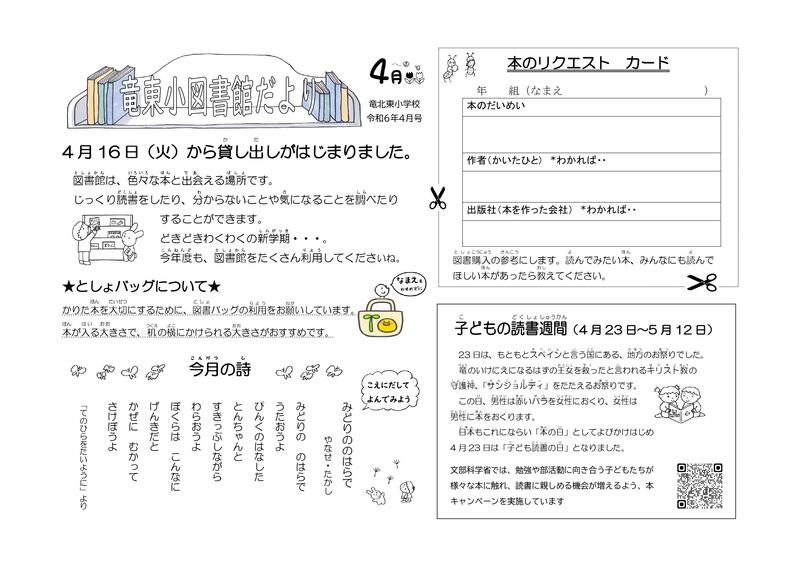 竜東小図書館だより
4月
竜北東小学校
令和6年4月号
4月16日（火）から貸し出しがはじまりました。
図書館は、色々な本と出会える場所です。
じっくり読書をしたり、分からないことや気になることを調べたり
することができます。
どきどきわくわくの新学期・・・。
今年度も、図書館をたくさん利用してくださいね。
★としょバッグについて★
かりた本を大切にするために、図書バッグの利用をお願いしています。
本が入る大きさで、机の横にかけられる大きさがおすすめです。
なまえも
わすれずに
今月の詩
こえにだして
よんでみよう
みどりののはらで
やなせ・たかし
みどりの のはらで
うたおうよ
ぴんくのはなした
とんちゃんと
すきっぷしながら
わらおうよ
ぼくらは こんなに
げんきだと
かぜに むかって
さけぼうよ
「てのひらをたいように」より
本のリクエスト カード
年 組（なまえ ）
本のだいめい
作者（かいたひと） *わかれば・・
出版社（本を作った会社） *わかれば・・
図書購入の参考にします。読んでみたい本、みんなにも読んで
ほしい本があったら教えてください。
子どもの読書週間（4月23日～5月12日）
23日は、もともとスペインと言う国にある、地方のお祭りでした。
竜のいけにえになるはずの王女を救ったと言われるキリスト教の
守護神、「サンジョルディ」をたたえるお祭りです。
この日、男性は赤いバラを女性におくり、女性は
男性に本をおくります。
日本もこれにならい「本の日」としてよびかけはじめ
4月23日は「子ども読書の日」となりました。
文部科学省では、勉強や部活動に向き合う子どもたちが
様々な本に触れ、読書に親しめる機会が増えるよう、本
キャンペーンを実施しています